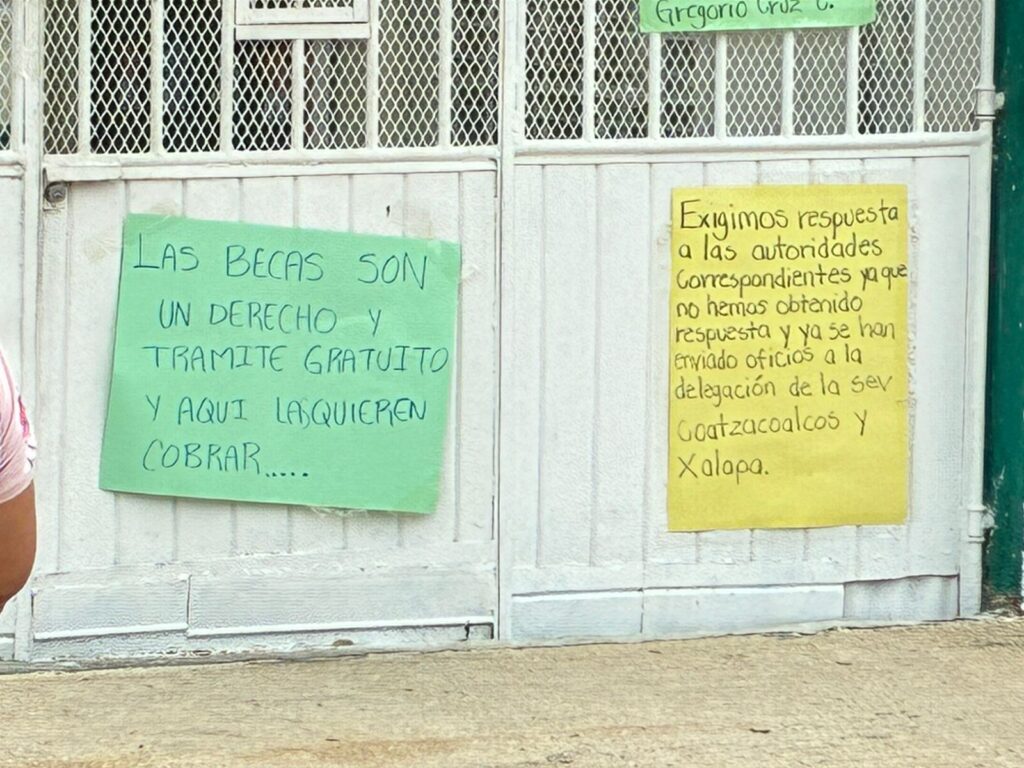 Gregorio Cruz C.
LAS BECAS SON
UN DERECHO Y
TRAMITE GRATUITO
Y AQUI LAS QUIEREN
COBRAR.....
Exigimos respuesta
a las autoridades
correspondientes ya que
no hemos obtenido
respuesta y ya se han
enviado oficios a la
delegación de la sev
Coatzacoalcos y
Xalapa.